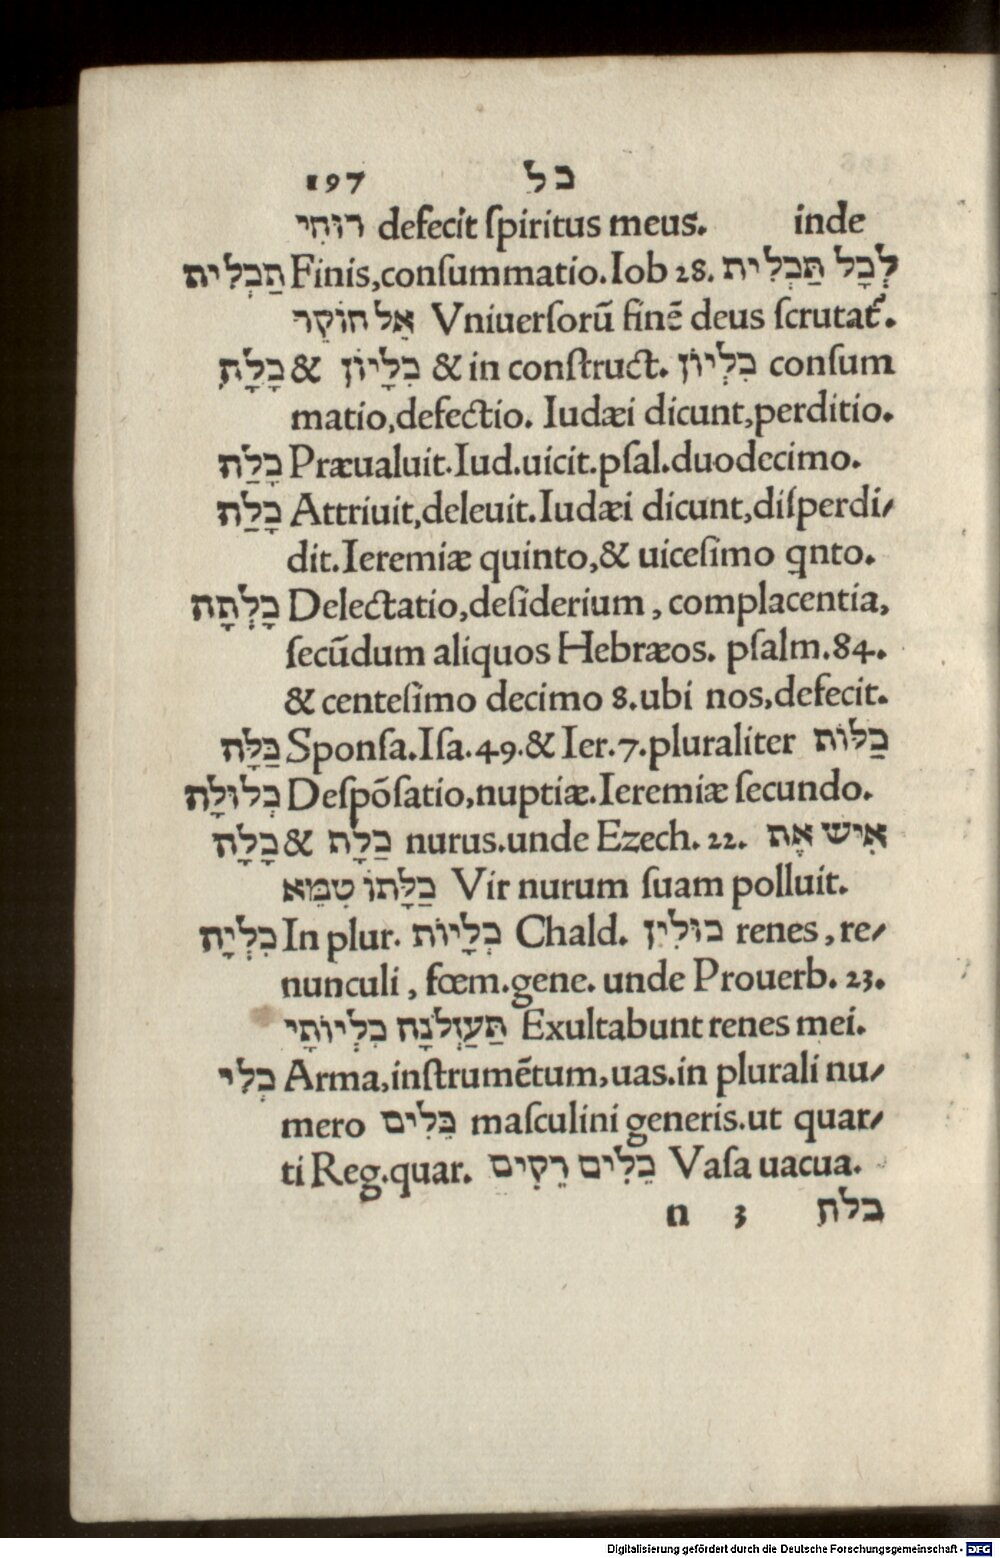 197 כל
רוּחִי defecit ſpiritus meus. inde
תַּכְלִית Finis,conſummatio.Iob 28. לְכָל תַּכְלִית
אֵל חוֹקֵר Vniuerſorū finē deus ſcrutat᷑.
כָּלָה & כִּלָּיוֹן & in conſtruct. כִּלְיוֹן conſum
matio,defectio. Iudæi dicunt,perditio.
כָּלַח Præualuit.Iud.uicit.pſal.duodecimo.
כָּלַח Attriuit,deleuit.Iudæi dicunt,diſperdi/
dit.Ieremiæ quinto,& uiceſimo qnto.
כָּלְתָה Delectatio,deſiderium, complacentia,
ſecūdum aliquos Hebræos. pſalm.84.
& centeſimo decimo 8.ubi nos,defecit.
כַּלָּה Sponſa.Iſa.49.& Ier.7.pluraliter כַּלּוֹת
כְּלוּלָה Deſpōſatio,nuptiæ.Ieremiæ ſecundo.
כָּלָה & כַּלָּה nurus.unde Ezech. 22. אִישׁ אֶת
כַּלָּתוֹ טִמֵּא Vir nurum ſuam polluit.
כִּלְיָה In plur. כְּלָיוֹת Chald. כּוּלִין renes, re/
nunculi, fœm.gene. unde Prouerb. 23.
תַּעַזְלֹנָה כִּלְיוֹתָי Exultabunt renes mei.
כְּלִי Arma,inſtrumētum,uas.in plurali nu/
mero כֵּלִים maſculini generis.ut quar/
ti Reg.quar. כֵּלִים רֵקִים Vaſa uacua.
n 3 כלה
Digitalisierung gefördert durch die Deutsche Forschungsgemeinschaft - DFG